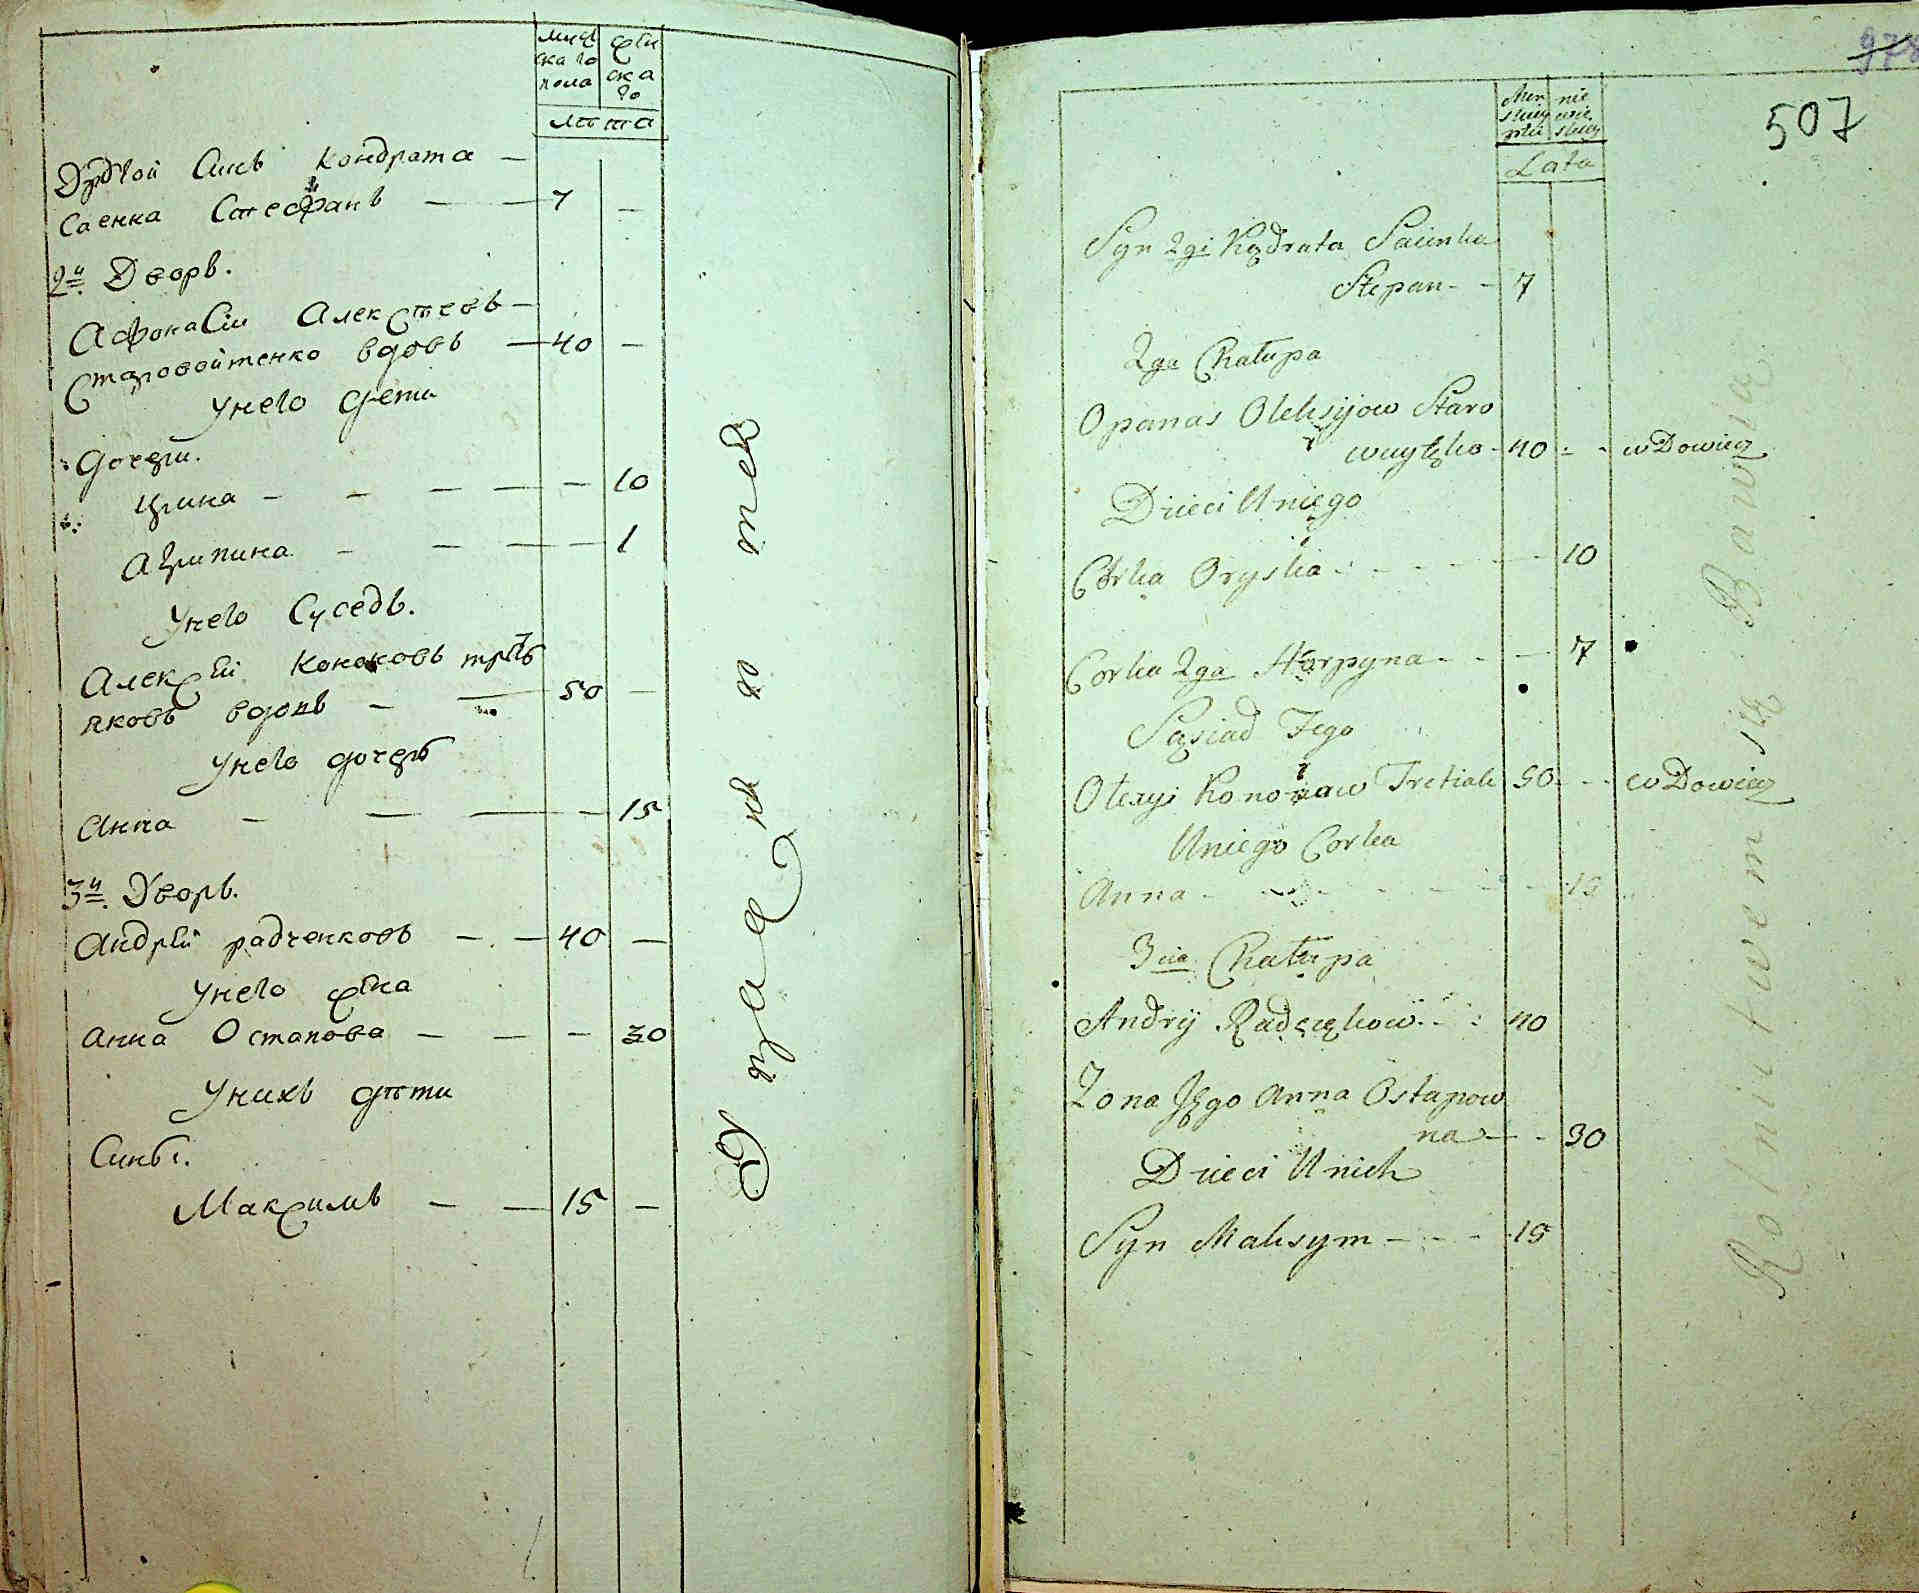 муж
ска го
пола
жен
ска
го
лета
Другой Синъ Кондрата —
Саенка Стефанъ — — 7 —
2й Дворъ.
Афонасіи Алексѣевъ —
Старовойтенко вдовъ — 40 —
Унего дети
Дочери.
Ирина — — — — — 10
Агрипина — — — — 1
Унего Суседъ.
Алексѣй Коноховъ трет
яковъ вдовъ — — 50 —
Унего дочерь
Анна — — — — 15
3й Дворъ.
Андрѣй радченковъ — — 40 —
Унего жена
Анна Остапова — — — 30
Унихъ дѣти
Синъ.
Максимъ — — 15 —
507
Męz
nie
Lata
Syn 2gi Kądrata Saienka
Stepan - - 7
2ga Chałupa
Opanas Oleksijow Staro
40 - - wDowiec
Dzieci Uniego
Corka Oryska - - - - - 10
Corka 2ga Horpyna - - - 7
Sąsiad Jego
Olexyi Tretiak 50 - - wDowiec
Uniego Corka
Anna - - - - - - 15
3cia Chałupa
Andrij - - 40
Zona Jego Anna Ostapow
na - - 30
Dzieci Unich
Syn Maksym - - - 15
Rolnictwem się Bawią